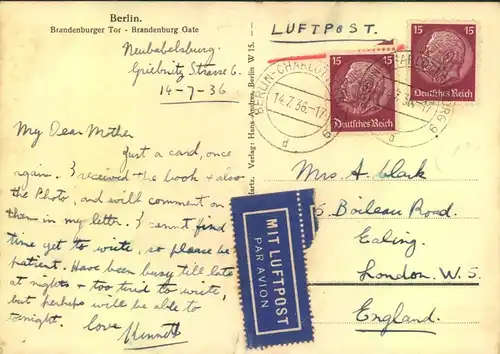 Berlin.
Brandenburger Tor - Brandenburg Gate
LUFTPOST.
Neubabelsburg.
Griebnitz Strasse 6.
14-7-36
My Dear Mother
Just a card, once
again. I received the book & also
the Photo, and will comment on
them in my letter. I cannot find
time yet to write, so please be
patient. Have been busy till late
at nights & too tired to write,
but perhaps will be able to
tonight. love Kenneth
Karte. Verlag: Hans Andres, Berlin W 15.
15 15
Deutsches Reich
15
Deutsches Reich
BERLIN-CHARLOTTENBURG 9
14.7.36.-17
d
MIT LUFTPOST
PAR AVION
Mrs A. Clark
5 Boileau Road.
Ealing.
London. W. 5.
England.